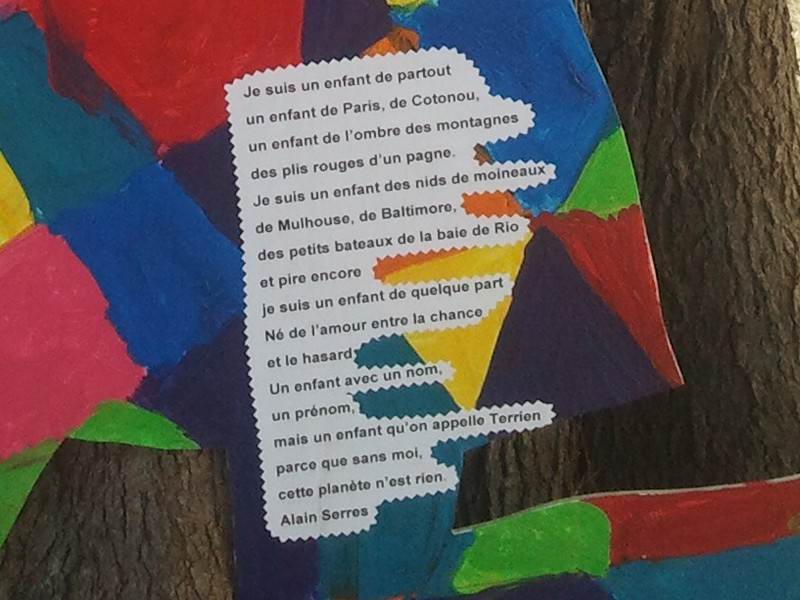 Je suis un enfant de partout
un enfant de Paris, de Cotonou,
un enfant de l'ombre des montagnes
des plis rouges d'un pagne.
Je suis un enfant des nids de moineaux
de Mulhouse, de Baltimore,
des petits bateaux de la baie de Rio
et pire encore
je suis un enfant de quelque part
Né de l'amour entre la chance
et le hasard
Un enfant avec un nom,
un prénom,
mais un enfant qu'on appelle Terrien
parce que sans moi,
cette planète n'est rien.
Alain Serres